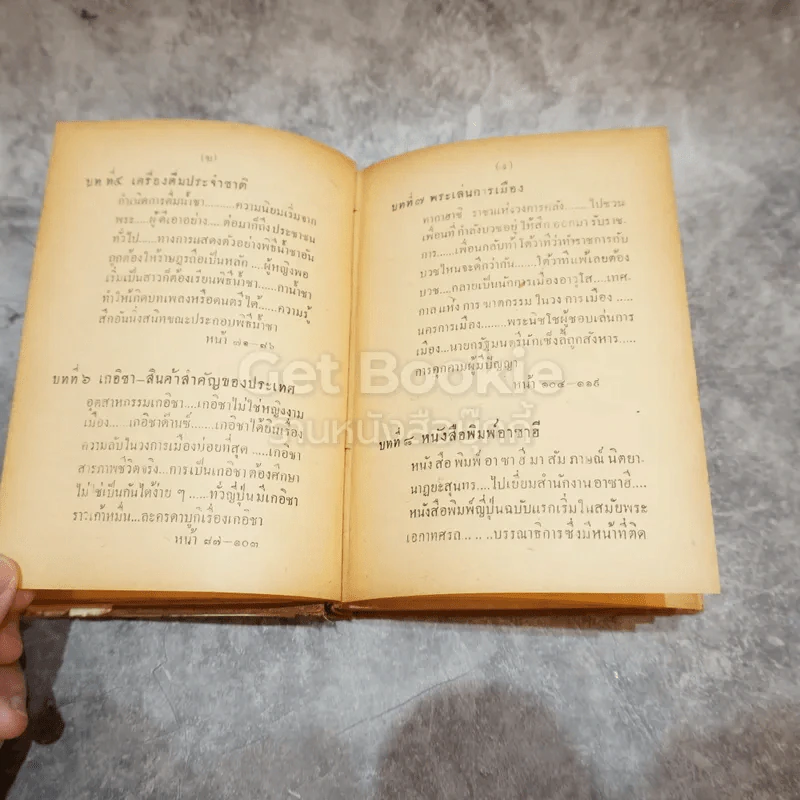 (ฆ)
บทที่๕ เครื่องดื่มประจำชาติ
กำเนิดการดื่มน้ำชา........ความนิยมเริ่มจาก
พระ.....ผู้ดีเอาอย่าง.....ต่อมาก็ถึงประชาชน
ทั่วไป.....ทางการแสดงตัวอย่างพิธีน้ำชาอัน
ถูกต้องให้ราษฎรถือเป็นหลัก....ผู้หญิงพอ
เริ่มเป็นสาวก็ต้องเรียนพิธีน้ำชา......กาน้ำชา
ทำให้เกิดบทเพลงหรือดนตรีได้......ความรู้
สึกอันนิ่งสนิทขณะประกอบพิธีน้ำชา
หน้า ๗๑-๘๖
บทที่๖ เกอิชา-สินค้าสำคัญของประเทศ
อุตสาหกรรมเกอิชา.....เกอิชาไม่ใช่หญิงงาม
เมือง.....เกอิชาด๊านซ์.......เกอิชาได้ยินเรื่อง
ความลับในวงการเมืองบ่อยที่สุด.....เกอิชา
สารภาพชีวิตจริง....การเป็นเกอิชาต้องศึกษา
ไม่ใช่เป็นกันได้ง่าย ๆ.....ทั่วญี่ปุ่นมีเกอิชา
ราวเก้าหมื่น...ละครคาบูกิเรื่องเกอิชา
หน้า ๘๗-๑๐๓
(ง)
บทที่๗ พระเล่นการเมือง
คากาฮาชิ ราชาแห่งวงการคลัง.......ไปชวน
เพื่อนที่กำลังบวชอยู่ ให้สึกออกมารับราช-
การ......เพื่อนกลับท้าได้ว่าที่ว่าทัพราชการกับ
บวชไหนจะดีกว่ากัน.......ได้ว่าทีแพ้เลยต้อง
บวช....กลายเป็นนักการเมืองอาวุโส....เทศ-
กาลแห่งการฆาตกรรมในวงการเมือง.....
นครการเมือง........พระนิชโชผู้ชอบเล่นการ
เมือง...นายกรัฐมนตรีนักเซ็งลี้ถูกสังหาร.....
การคุกคามผู้มีปัญญา
หน้า ๑๐๔-๑๑๙
บทที่๘ หนังสือพิมพ์อาซาฮี
หนังสือพิมพ์อาซาฮีมาสัมภาษณ์นิตยา.
นาฏยะสุนทร....ไปเยี่ยมสำนักงานอาซาฮี....
หนังสือพิมพ์ญี่ปุ่นฉบับแรกเริ่มในสมัยพระ
เอกาทศรถ........บรรณาธิการซึ่งมีหน้าที่ติด
Get Bookie
ร้านหนังสือกุ๊กกี้